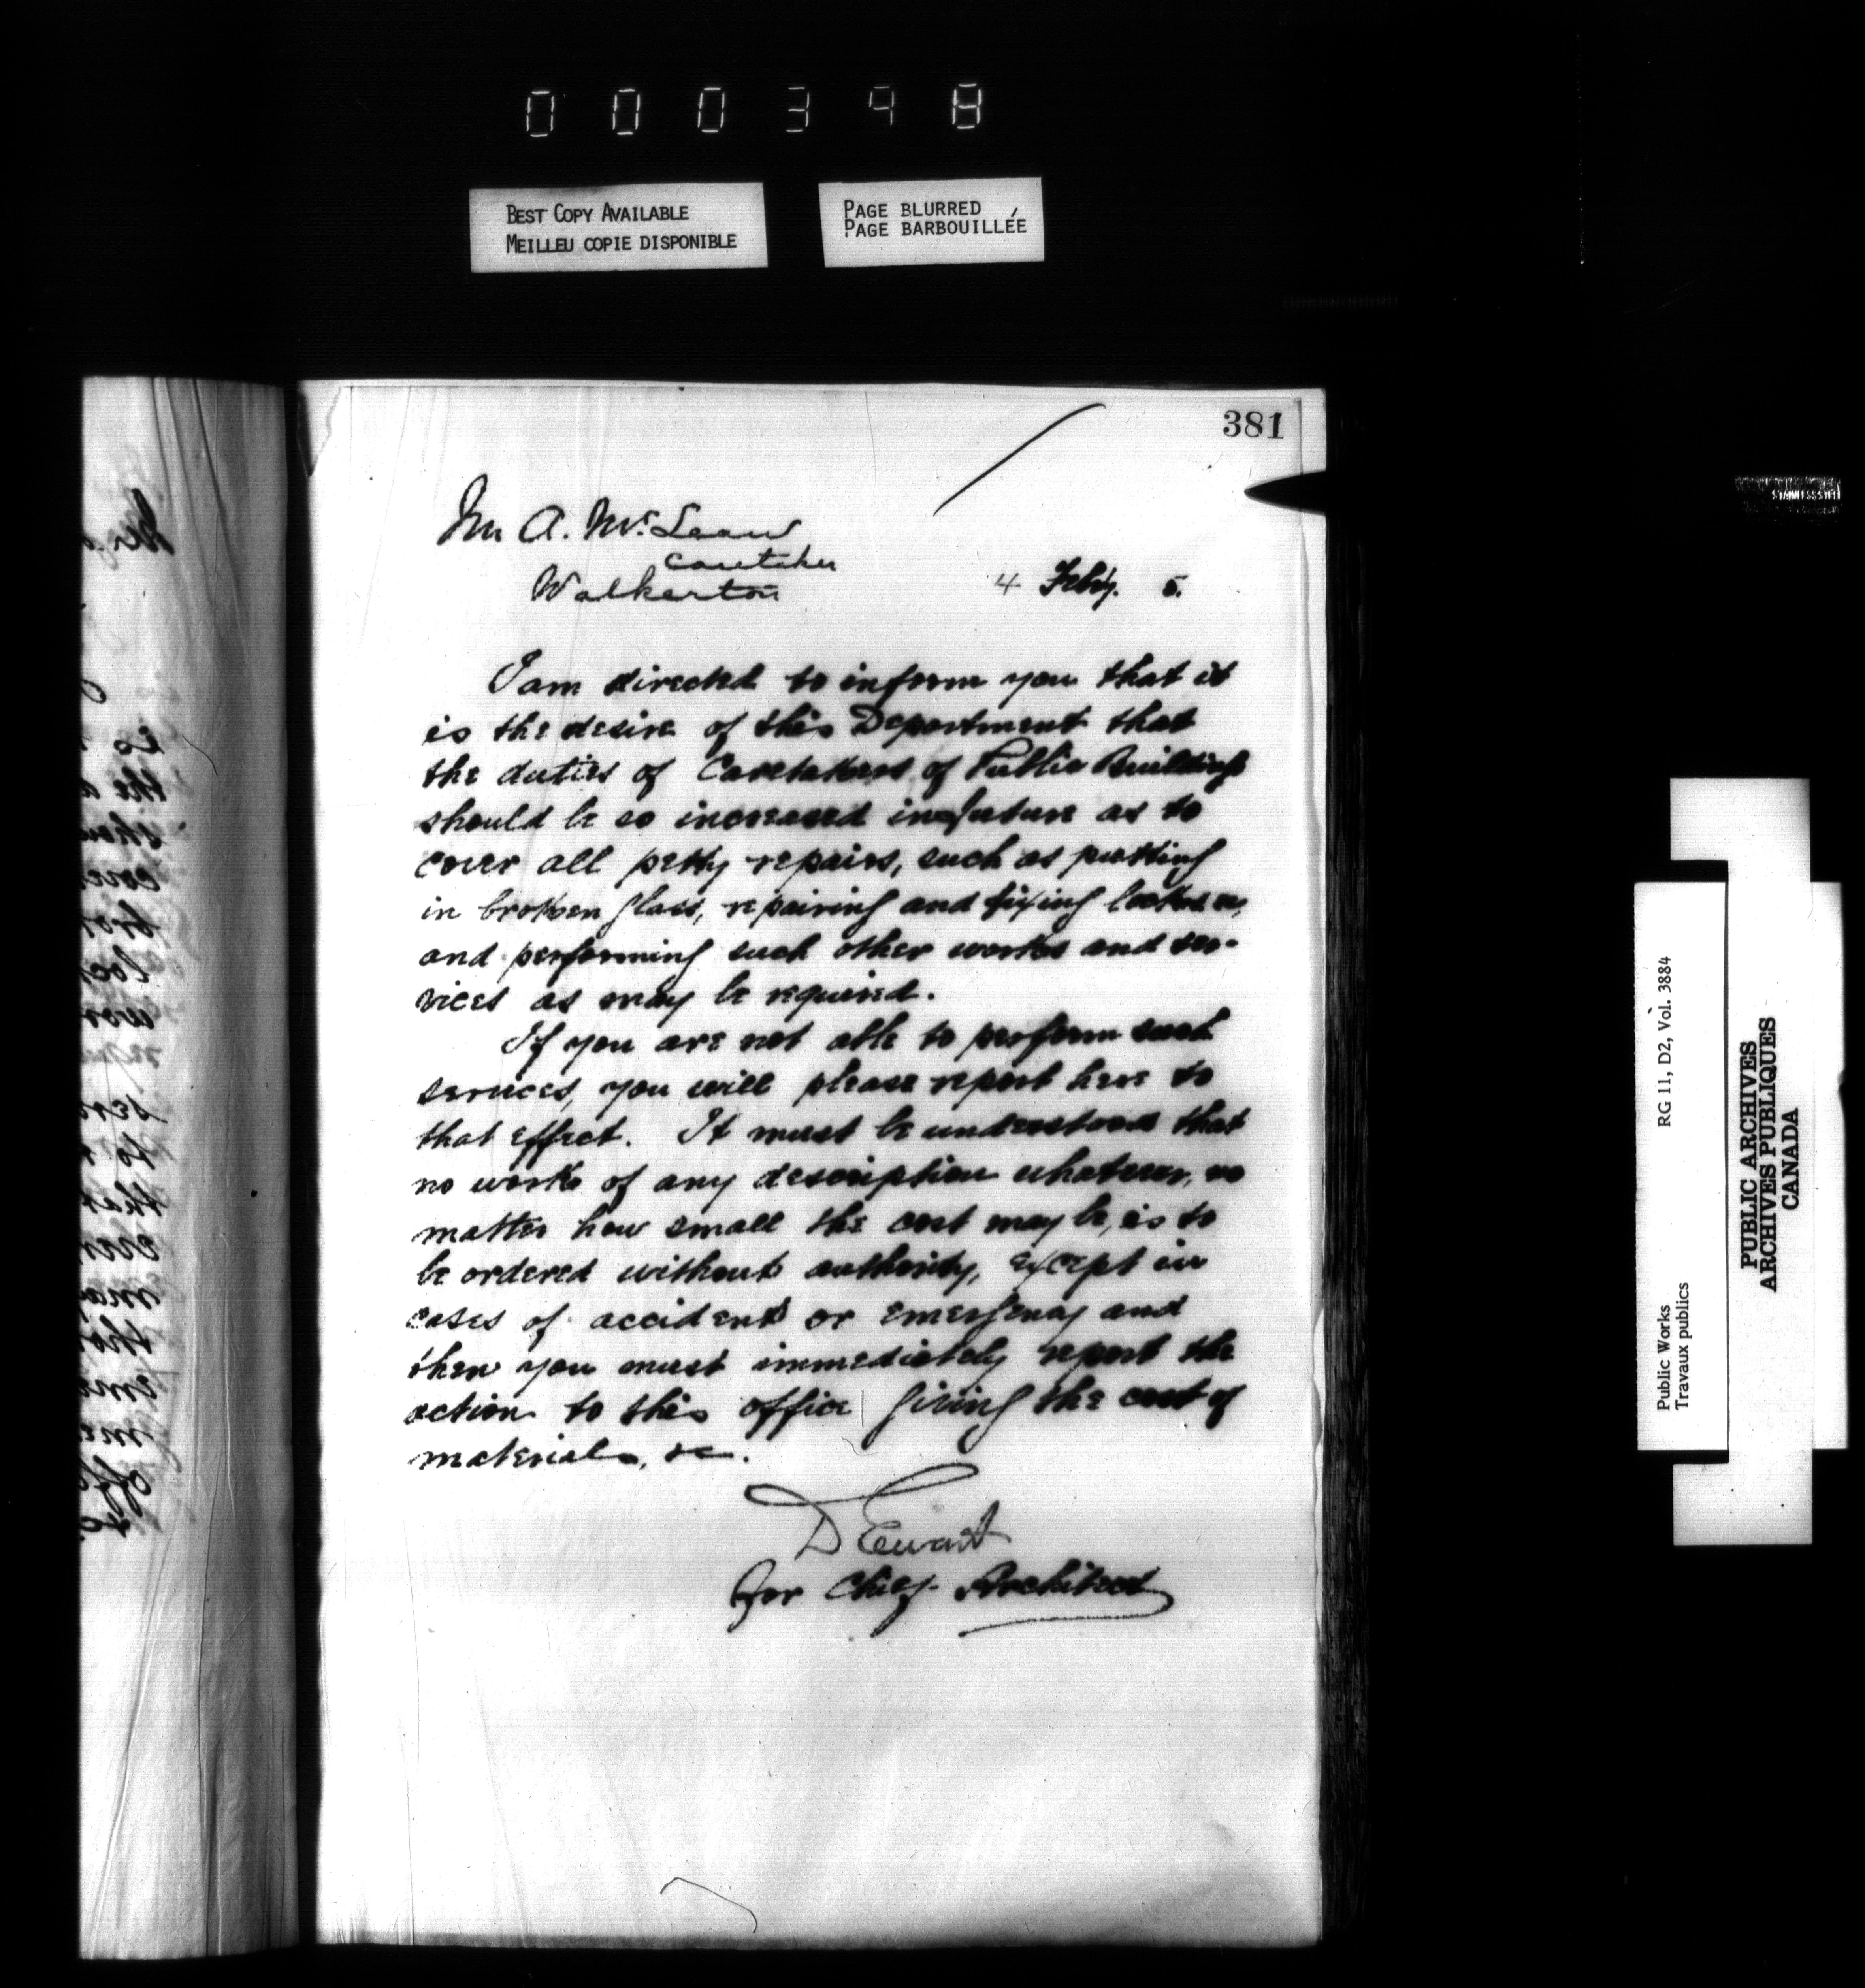 000398
BEST COPY AVAILABLE
MEILLEU COPIE DISPONIBLE
PAGE BLURRED
PAGE BARBOUILLÉE
381
Mr A. McLean
Caretaker
Walkerton
4 Feby. 5.
I am directed to inform you that it
is the desire of this Department that
the duties of Caretakers of Public Buildings
should be so increased in future as to
cover all petty repairs, such as putting
in broken glass, repairing and fixing locks &c,
and performing such other works and ser-
vices as may be required.
If you are not able to perform such
services, you will please report here to
that effect. It must be understood that
no work of any description whatever, no
matter how small the cost may be, is to
be ordered without authority, except in
cases of accident or emergency and
then you must immediately report the
action to this office giving the cost of
materials, &c.
D Ewart
for Chief Architect
Public Works
Travaux publics
RG 11, D2, Vol. 3884
PUBLIC ARCHIVES
ARCHIVES PUBLIQUES
CANADA